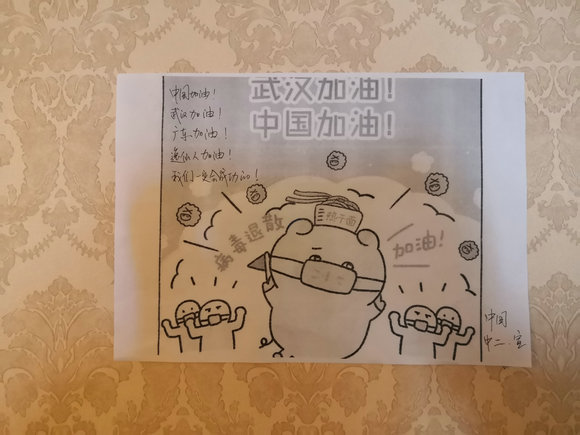 武汉加油!
中国加油!
中国加油!
武汉加油!
广东加油!
逸仙人加油!
我们一定会成功的!
热干面
病毒退散
加油!
中国
中二.宣